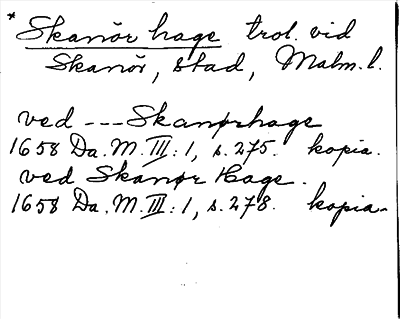 * Skanör hage trol. vid
Skanör, stad, Malm. l.
ved --- Skanørhage
1658 Da. M. III: 1, s. 275. kopia.
ved Skanør Hage.
1658 Da. M. III: 1, s. 278. kopia.